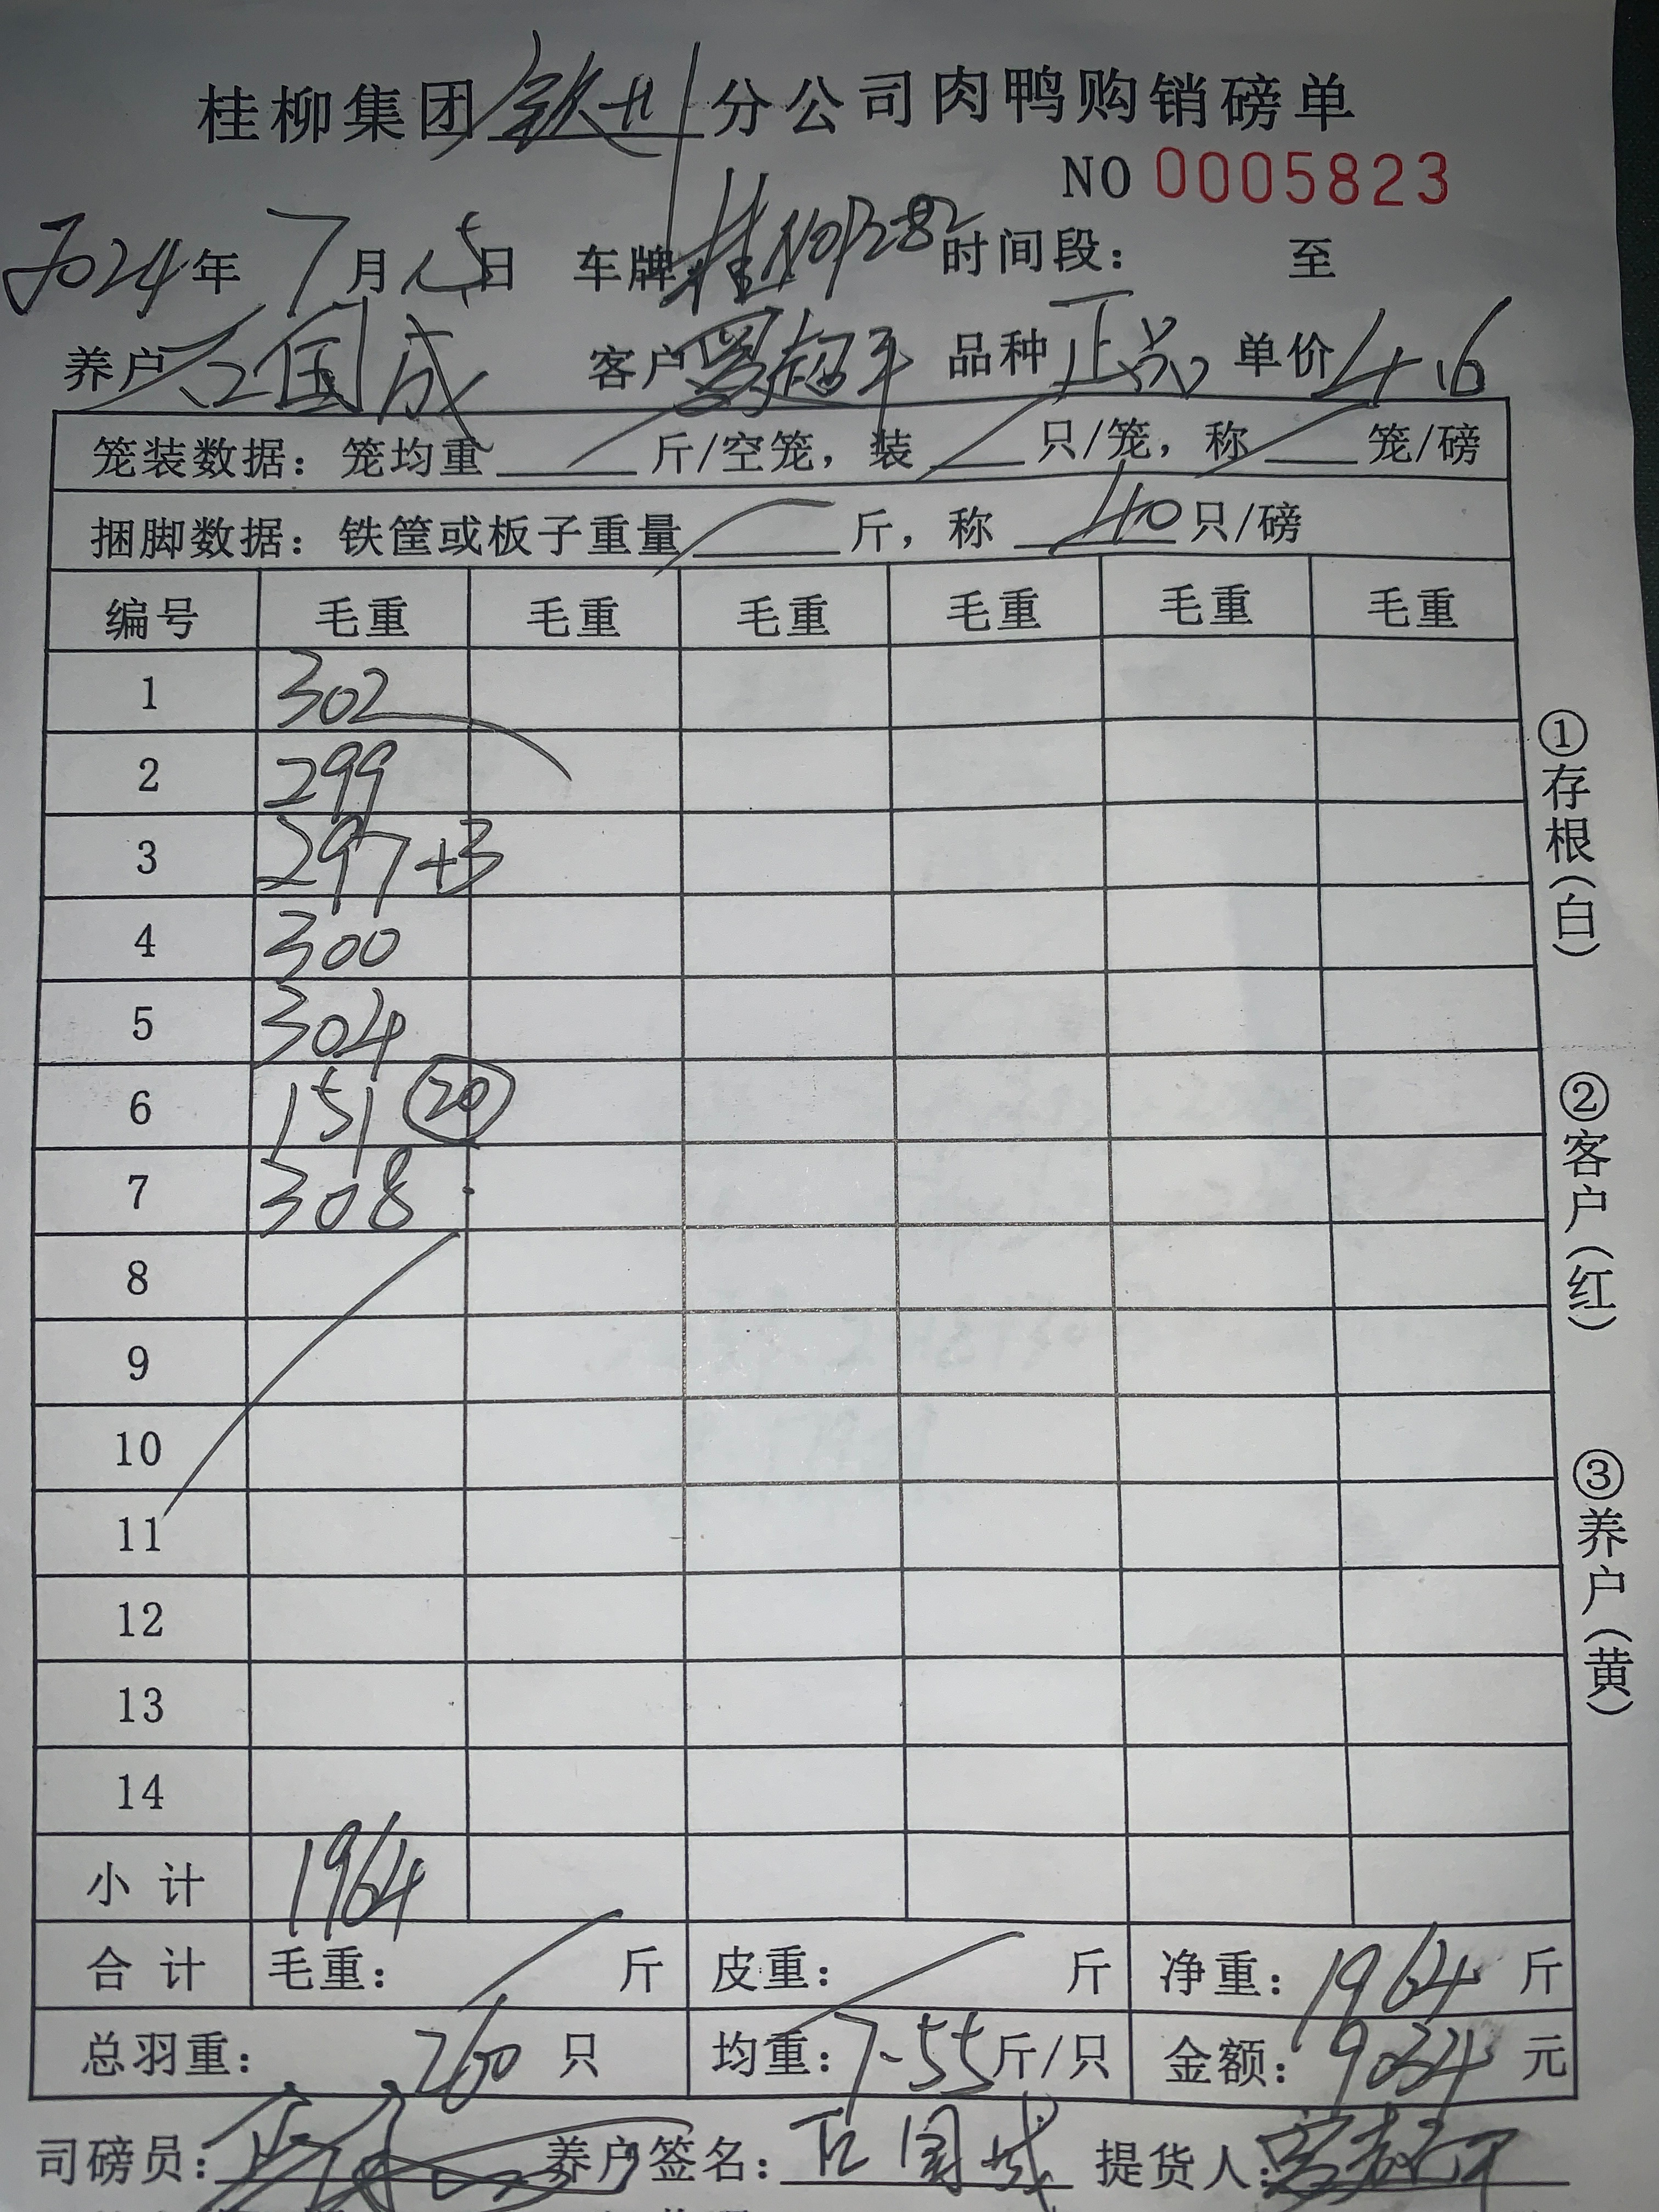 桂柳集团钦州分公司肉鸭购销磅单
NO 0005823
2024年7月15日 车牌桂N01282时间段: 至
养户 石国成 客户 超平 品种 正品 单价 4.6
笼装数据:笼均重 斤/空笼,装 只/笼,称 笼/磅
捆脚数据:铁筐或板子重量 斤,称 40只/磅
编号 毛重 毛重 毛重 毛重 毛重 毛重
1 302
2 299
3 297+3
4 300
5 304
6 151 20
7 308
8
9
10
11
12
13
14
小计 1964
合计 毛重: 斤 皮重: 斤 净重: 1964 斤
总羽重: 260 只 均重: 7.55斤/只 金额: 9034 元
司磅员: 养户签名: 石国成 提货人:
①存根(白)
②客户(红)
③养户(黄)